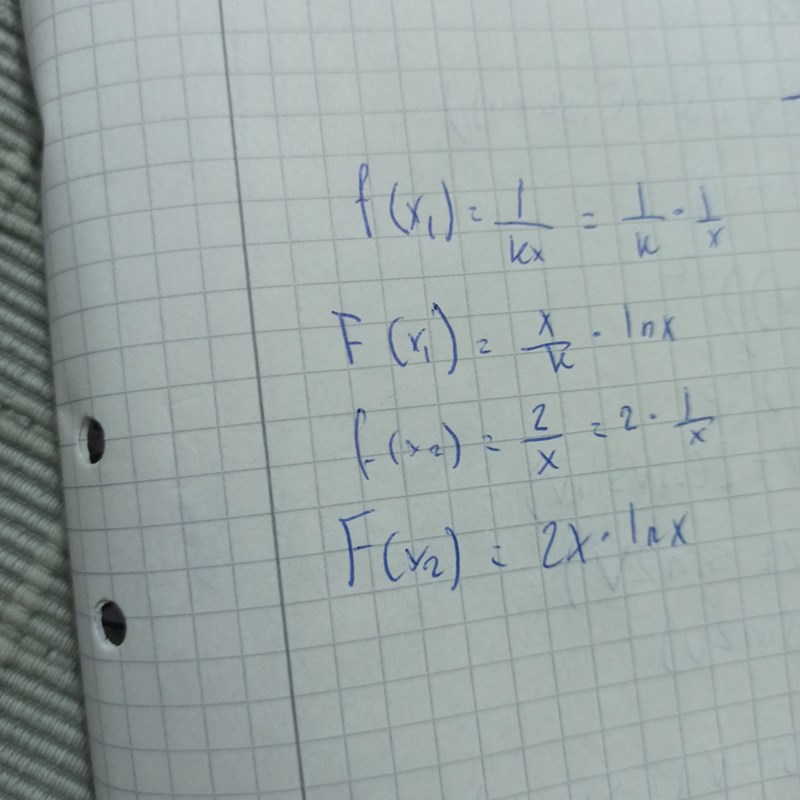 f(x₁) = 1/kx = 1/k · 1/x
F(x₁) = x/k · ln x
f(x₂) = 2/x = 2 · 1/x
F(x₂) = 2x · ln x